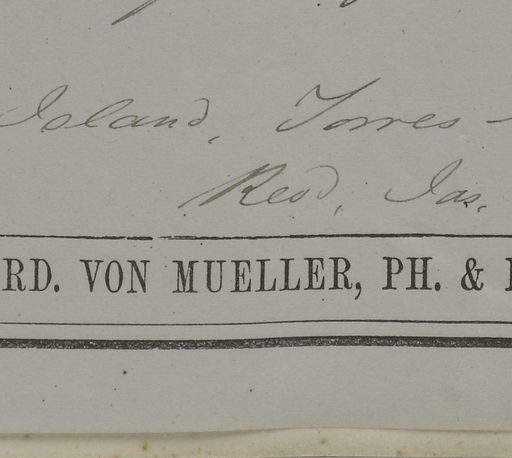 Island, Torres-
Revd. Jas.
RD. VON MUELLER, PH. &